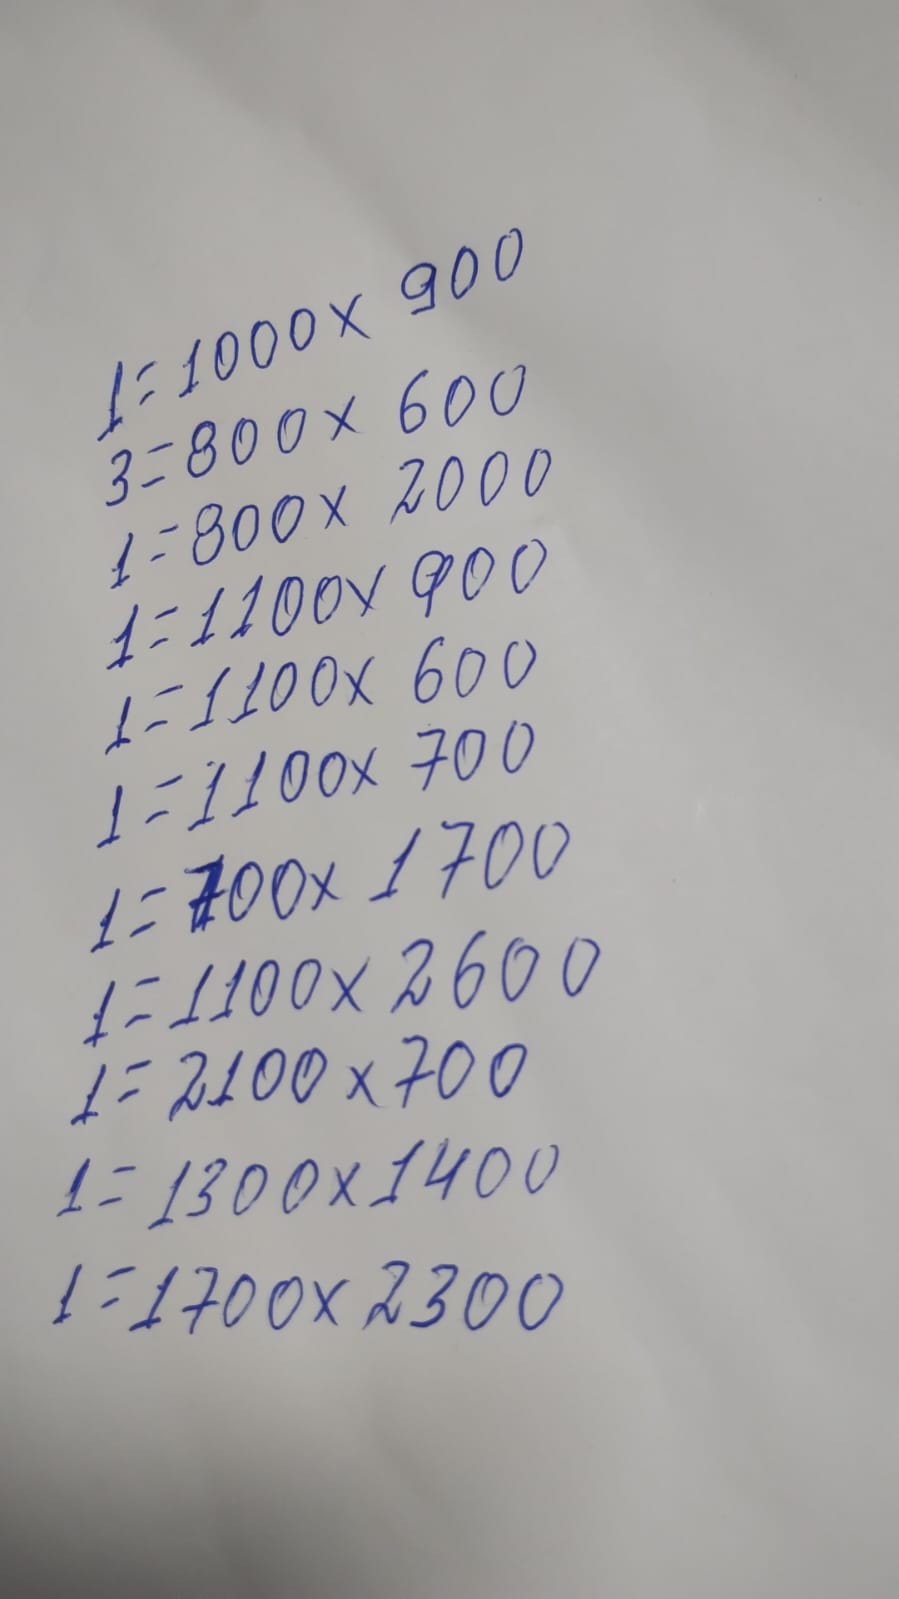 1=1000x 900
3=800x 600
1=800x 2000
1=1100x 900
1=1100x 600
1=1100x 700
1=700x 1700
1=1100x 2600
1=2100x700
1=1300x1400
1=1700x2300